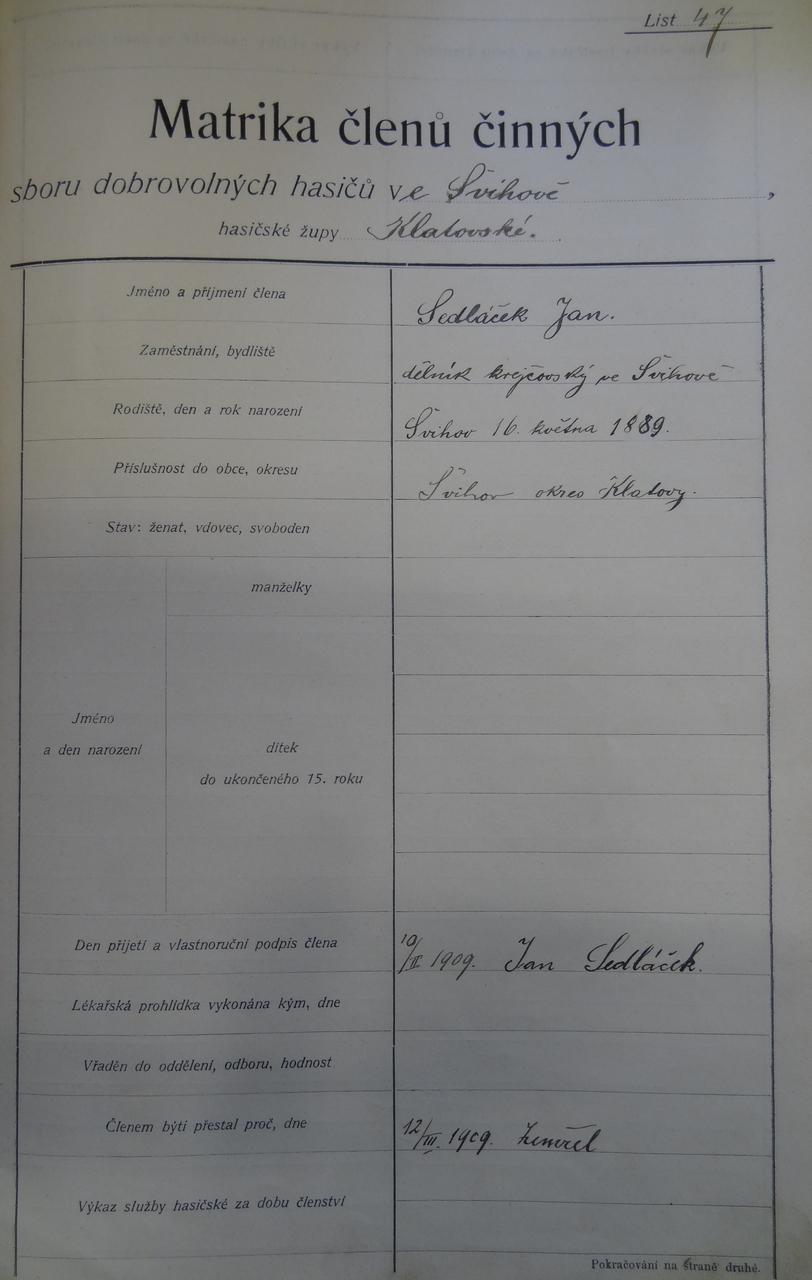 List 47
Matrika členů činných
sboru dobrovolných hasičů ve Švihově,
hasičské župy Klatovské.
Jméno a příjmení člena Sedláček Jan.
Zaměstnání, bydliště dělník krejčovský ve Švihově
Rodiště, den a rok narození Švihov 16. května 1889.
Příslušnost do obce, okresu Švihov okres Klatovy.
Stav: ženat, vdovec, svoboden
manželky
Jméno
a den narození
dítek
do ukončeného 15. roku
Den přijetí a vlastnoruční podpis člena 10/II 1909. Jan Sedláček.
Lékařská prohlídka vykonána kým, dne
Vřaděn do oddělení, odboru, hodnost
Členem býti přestal proč, dne 12/III. 1909. zemřel
Výkaz služby hasičské za dobu členství
Pokračování na straně druhé.